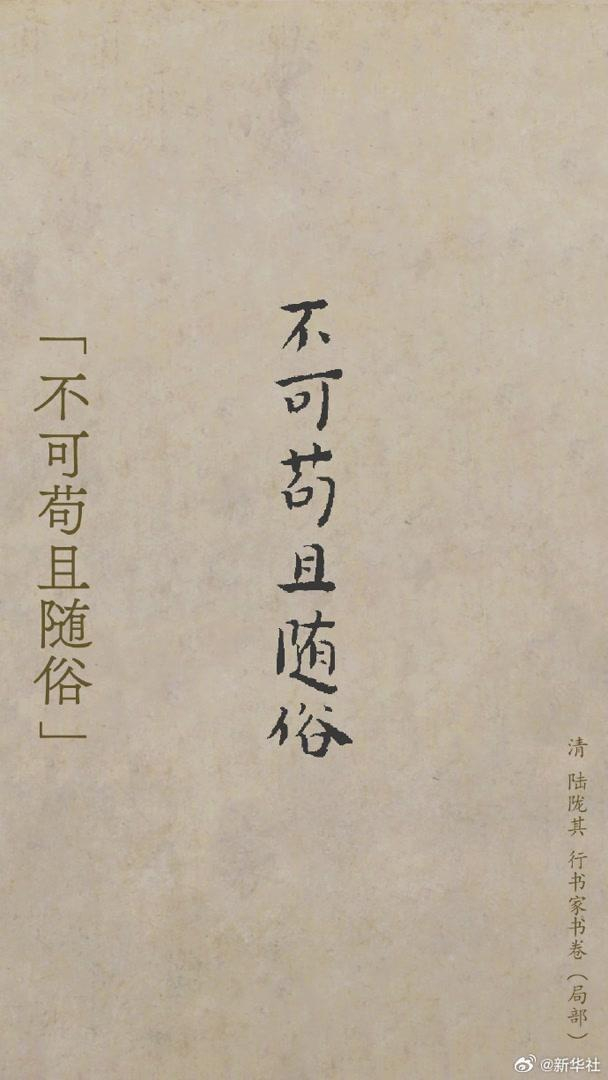 「不可苟且随俗」
不可苟且随俗
清 陆陇其 行书家书卷（局部）
@新华社